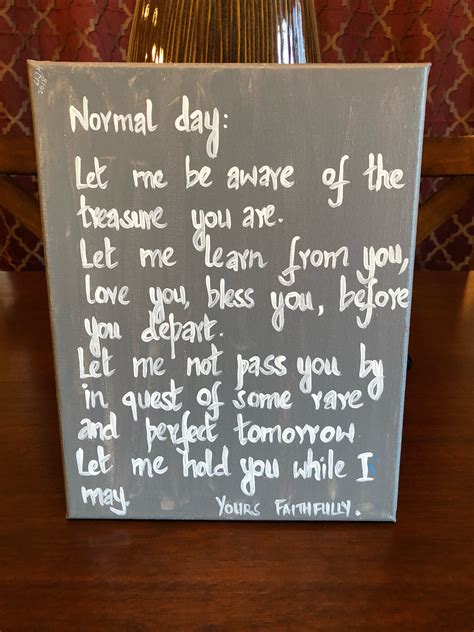 Normal day:
Let me be aware of the
treasure you are.
Let me learn from you,
love you, bless you, before
you depart.
Let me not pass you by
in quest of some rare
and perfect tomorrow
Let me hold you while I
may.
YOURS FAITHFULLY.